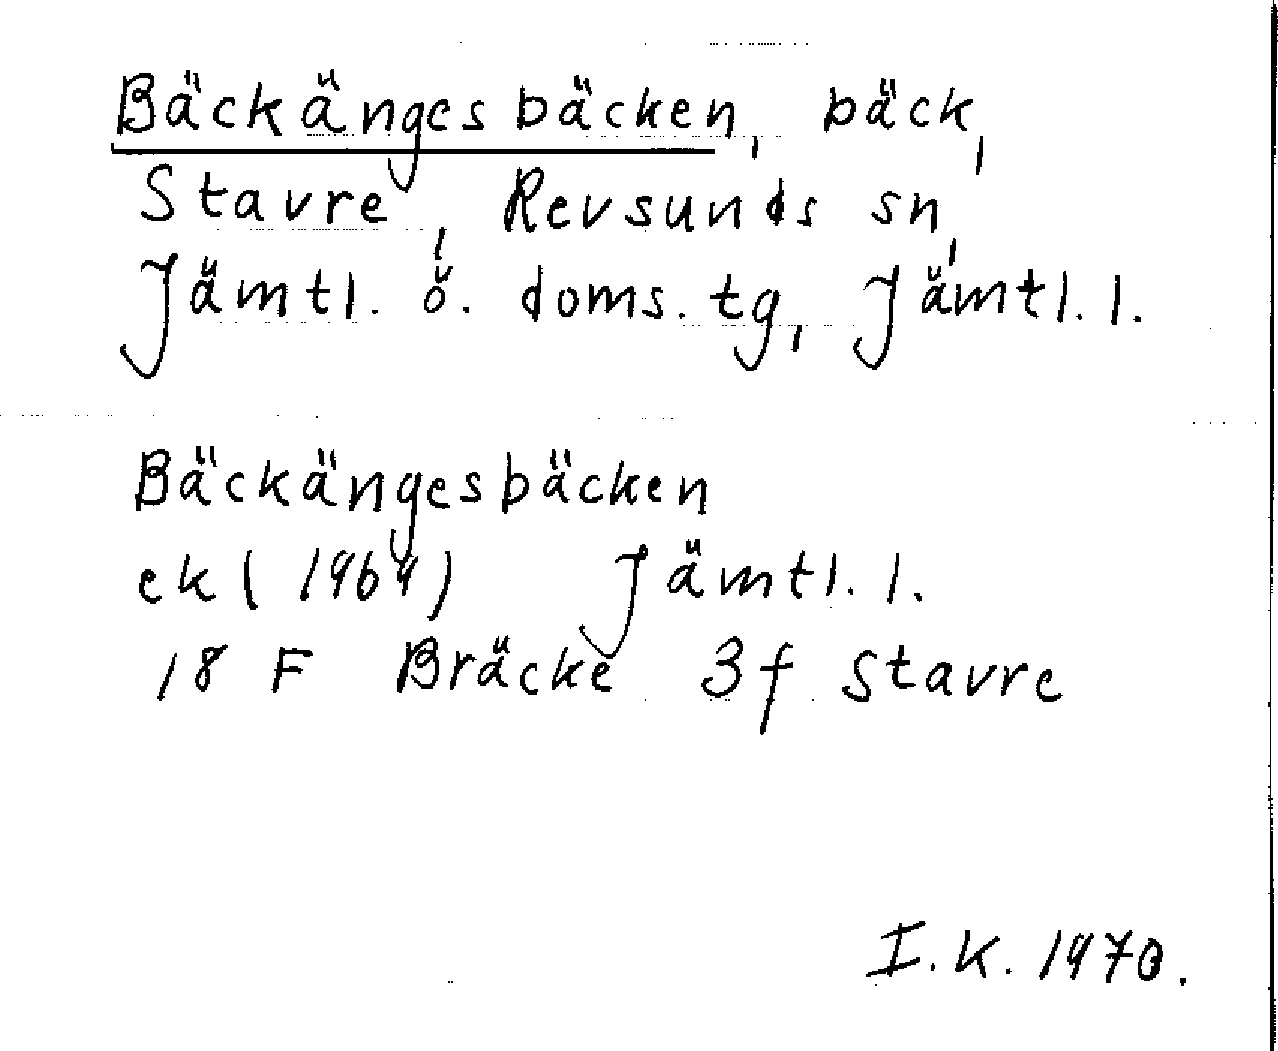 Bäckängesbäcken, bäck,
Stavre, Revsunds sn,
Jämtl. ö. doms. tg, Jämtl. l.
Bäckängesbäcken
ek (1964) Jämtl. l.
18 F Bräcke 3f Stavre
I. K. 1970.